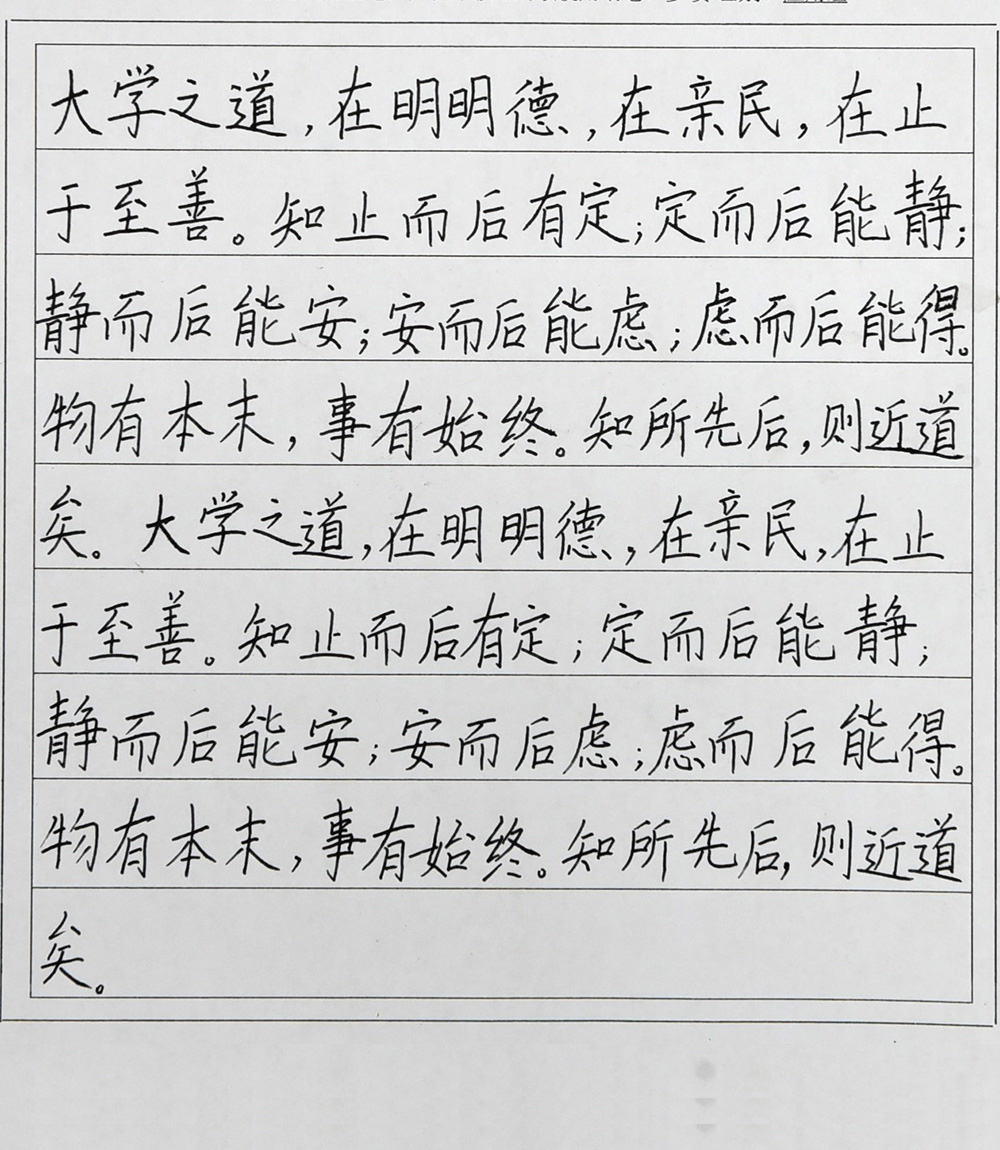 大学之道,在明明德,在亲民,在止
于至善。知止而后有定;定而后能静;
静而后能安;安而后能虑;虑而后能得。
物有本末,事有始终。知所先后,则近道
矣。大学之道,在明明德,在亲民,在止
于至善。知止而后有定;定而后能静;
静而后能安;安而后虑;虑而后能得。
物有本末,事有始终。知所先后,则近道
矣。